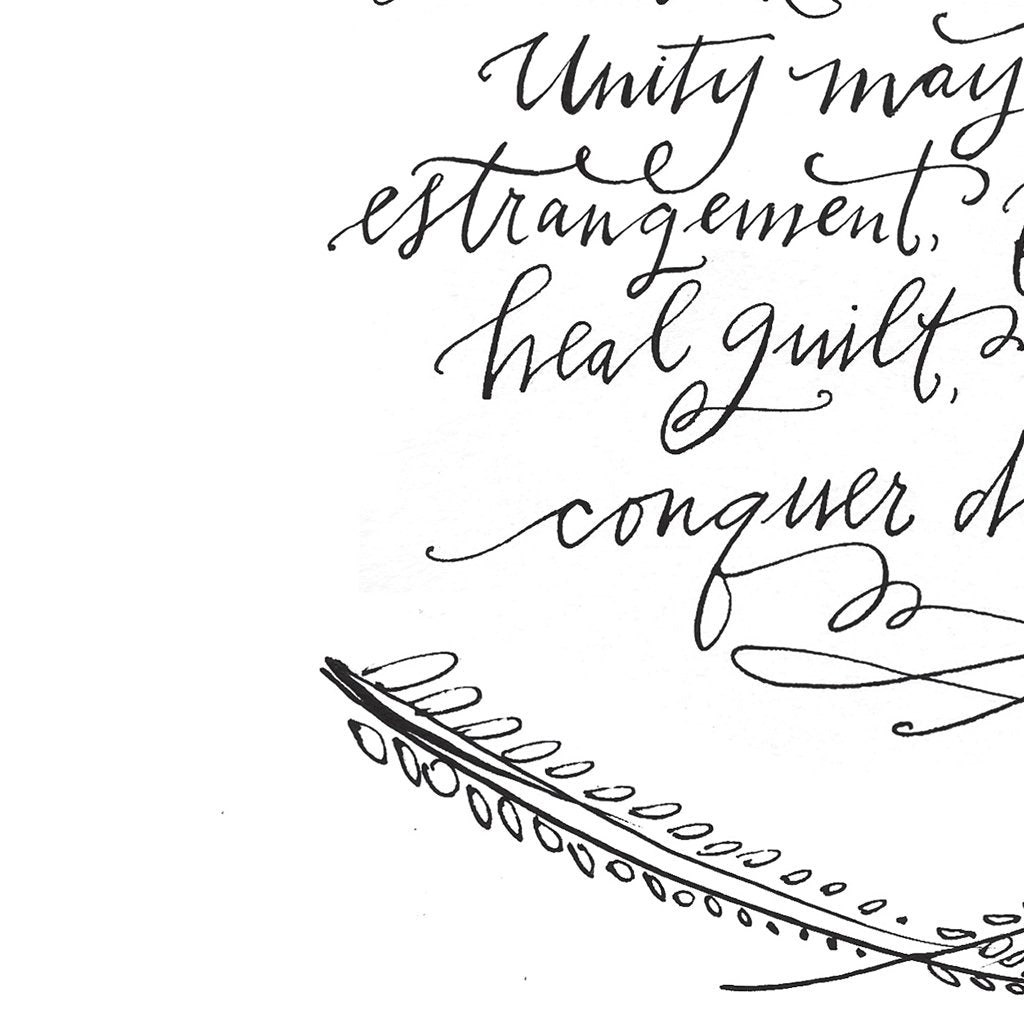 Unity may
estrangement,
heal guilt,
conquer